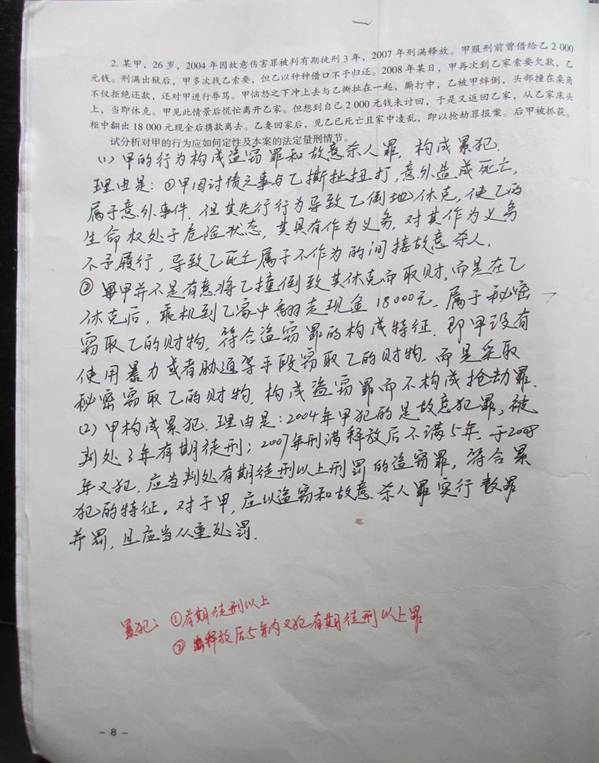 2. 某甲，26 岁，2004 年因故意伤害罪被判有期徒刑 3 年，2007 年刑满释放。甲服刑前曾借给乙 2 000
元钱。刑满出狱后，甲多次找乙索要，但乙以种种借口不予归还。2008 年某日，甲再次到乙家索要欠款，乙
不仅拒绝还款，还对甲进行辱骂。甲恼怒之下冲上去与乙撕扯在一起，厮打中，乙被甲绊倒，头部撞在桌角
上，当即休克。甲见此情景后慌忙离开乙家。但想到自己 2 000 元钱未讨回，于是又返回乙家，从乙家床头
柜中翻出 18 000 元现金后携款离去。乙妻回家后，见乙已死亡且家中凌乱，即以抢劫罪报案。后甲被抓获。
试分析对甲的行为应如何定性及本案的法定量刑情节。
(1) 甲的行为构成盗窃罪和故意杀人罪，构成累犯.
理由是：①甲因讨债之事与乙撕扯扭打，意外造成死亡，
属于意外事件. 但其先行行为导致乙倒地休克，使乙的
生命权处于危险状态，其具有作为义务，对其作为义务
不予履行，导致乙死亡属于不作为的间接故意杀人.
② 甲并不是有意将乙撞倒致其休克而取财，而是在乙
休克后，乘机到乙家中翻走现金18000元，属于秘密
窃取乙的财物，符合盗窃罪的构成特征. 即甲没有
使用暴力或者胁迫等手段窃取乙的财物. 而是采取
秘密窃取乙的财物，构成盗窃罪而不构成抢劫罪.
(2) 甲构成累犯. 理由是：2004年甲犯的是故意犯罪，被
判处3年有期徒刑；2007年刑满释放后不满5年，于2008
年又犯. 应当判处有期徒刑以上刑罚的盗窃罪，符合累
犯的特征。对于甲，应以盗窃和故意杀人罪实行数罪
并罚，且应当从重处罚.
累犯：①有期徒刑以上
② 释放后5年内又犯有期徒刑以上罪
- 8 -